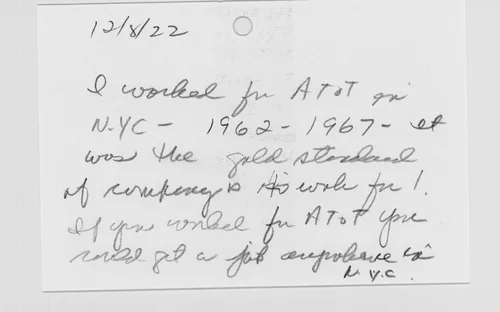 12/8/22
I worked for AT&T in
NYC - 1962 - 1967 - It
was the gold standard
of company's to work for!
If you worked for AT&T you
could get a job anywhere in
N.Y.C.